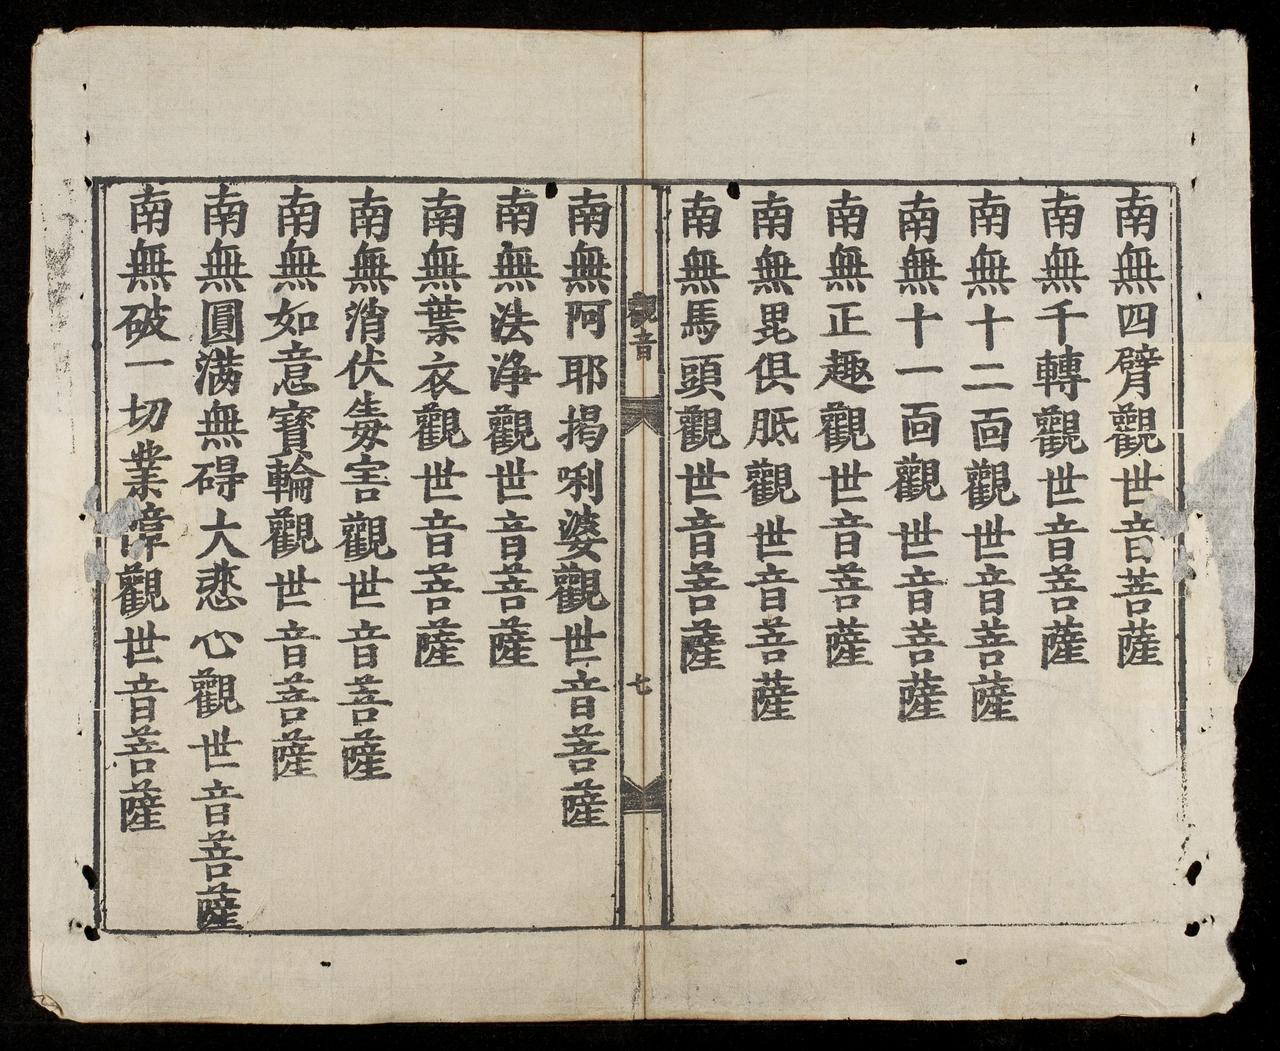 南無四臂觀世音菩薩
南無千轉觀世音菩薩
南無十二面觀世音菩薩
南無十一面觀世音菩薩
南無正趣觀世音菩薩
南無毘俱胝觀世音菩薩
南無馬頭觀世音菩薩
觀音
七
南無阿耶揭唎婆觀世音菩薩
南無法淨觀世音菩薩
南無葉衣觀世音菩薩
南無消伏毒害觀世音菩薩
南無如意寶輪觀世音菩薩
南無圓滿無碍大悲心觀世音菩薩
南無破一切業障觀世音菩薩